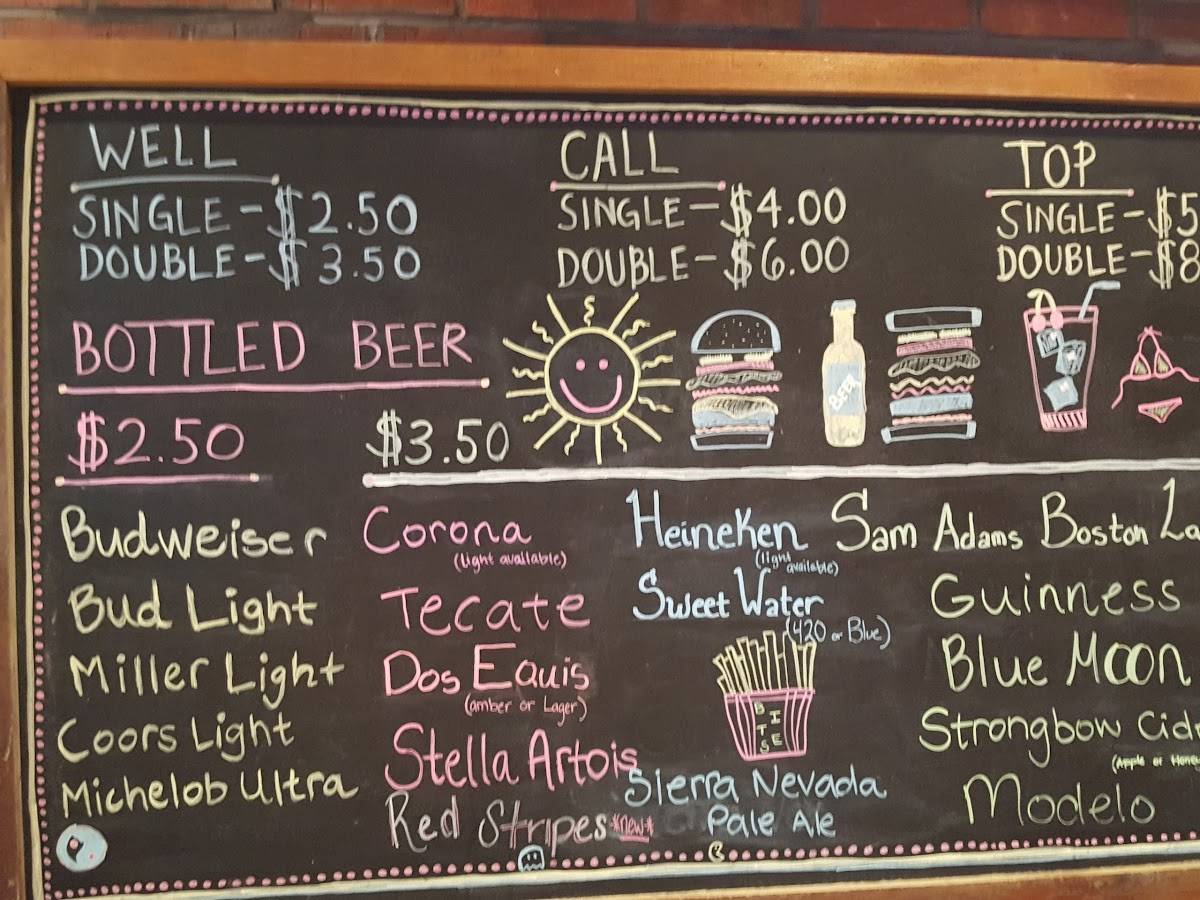 WELL
SINGLE - $2.50
DOUBLE - $3.50
CALL
SINGLE - $4.00
DOUBLE - $6.00
TOP
SINGLE - $5
DOUBLE - $8
BOTTLED BEER
$2.50
$3.50
BEER
Budweiser
Bud Light
Miller Light
Coors Light
Michelob Ultra
Corona
(light available)
Tecate
Dos Equis
(amber or Lager)
Stella Artois
Red Stripes *new*
Heineken
(light available)
Sweet Water
(420 or Blue)
BITSE
Sierra Nevada
Pale Ale
Sam Adams Boston La
Guinness
Blue Moon
Strongbow Cid
(Apple or Hone
Modelo